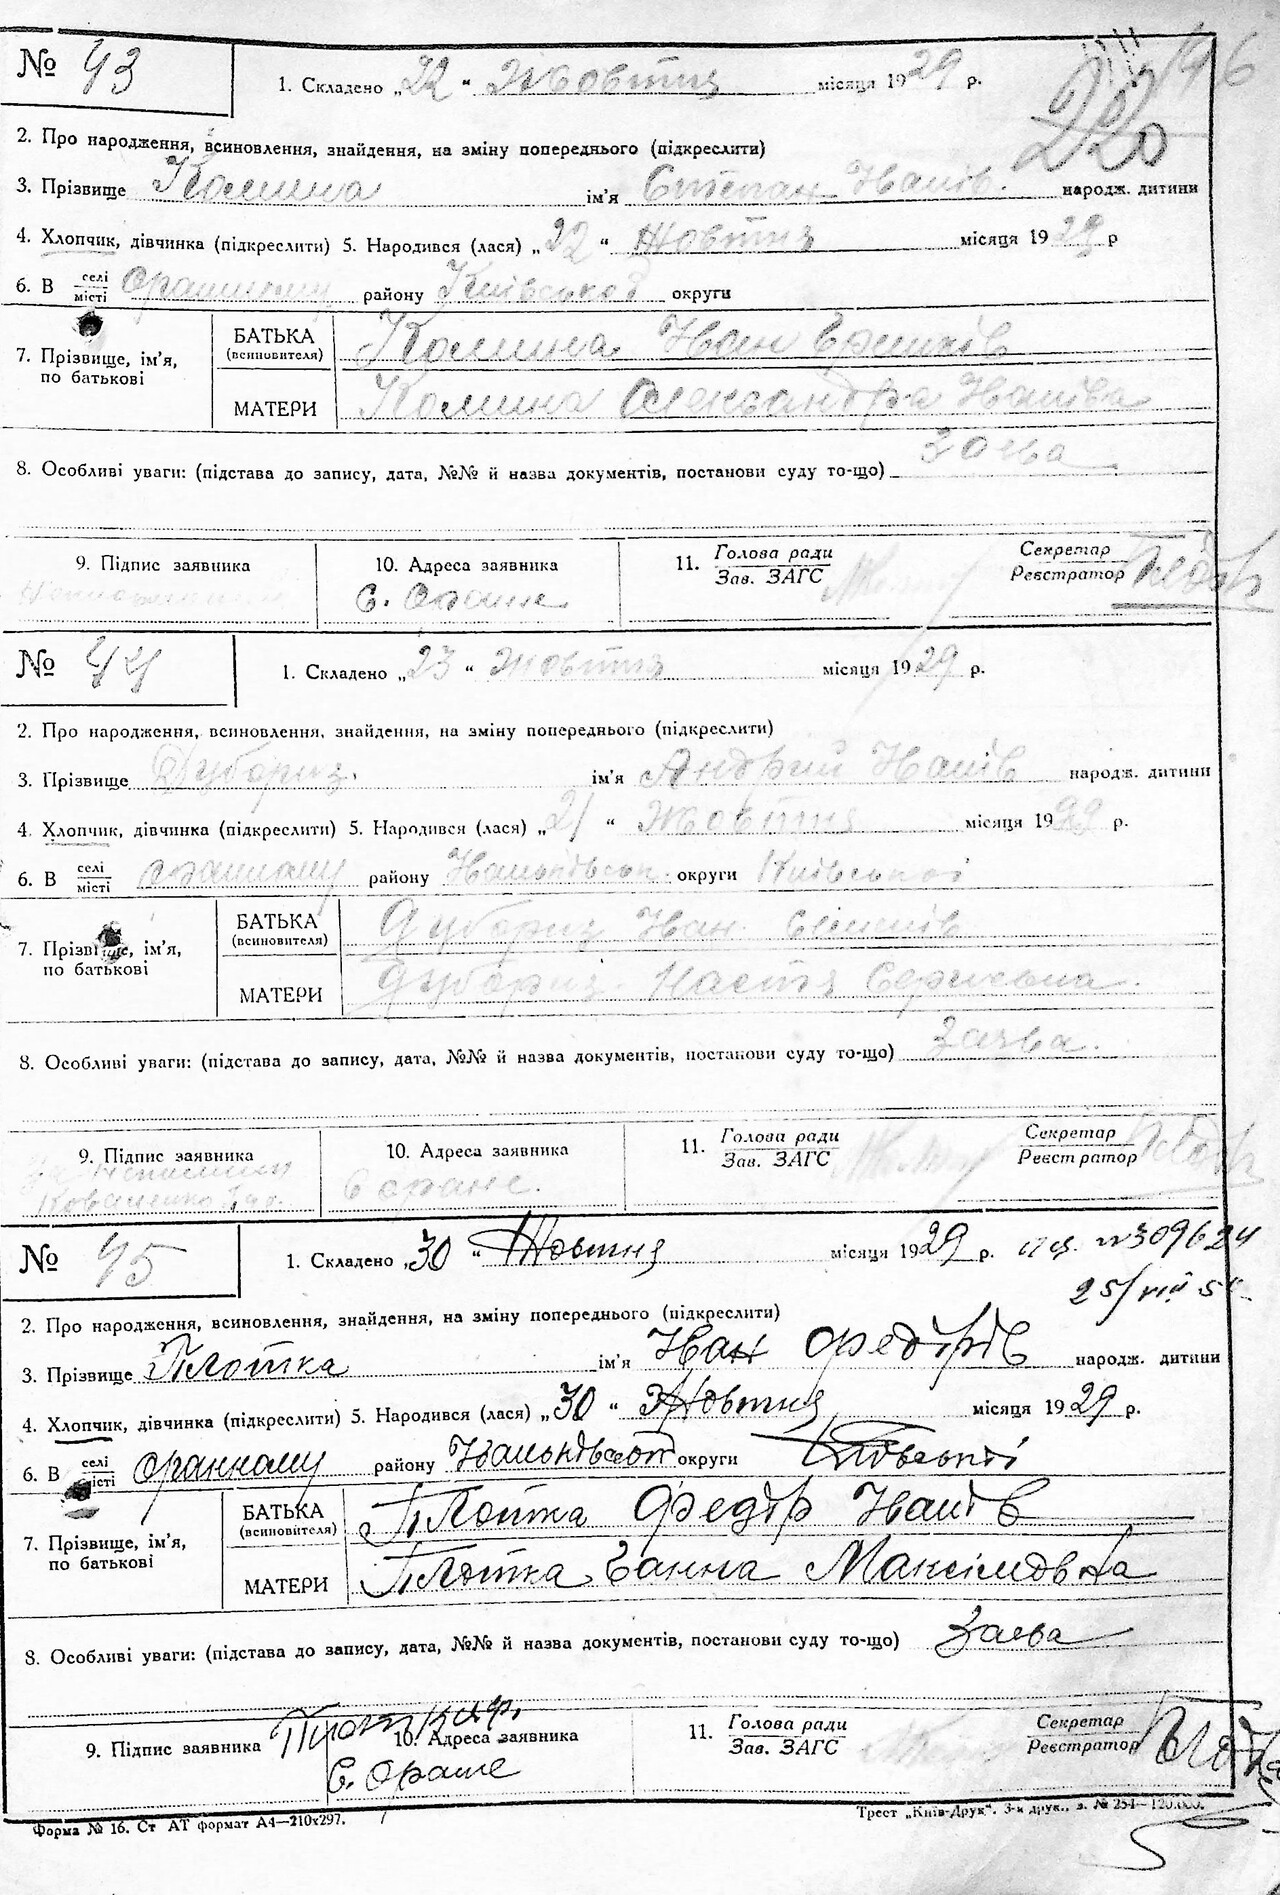 196
220
№ 43 1. Складено „22“ Жовтня місяця 1929 р.
2. Про народження, всиновлення, знайдення, на зміну попереднього (підкреслити)
3. Прізвище Калина ім'я Степан Іванів. народж. дитини
4. Хлопчик, дівчинка (підкреслити) 5. Народився (лася) „22“ Жовтня місяця 1929 р
6. В селі/місті району Київської округи
7. Прізвище, ім'я, по батькові
БАТЬКА (всиновителя) Калина Іван
МАТЕРИ Калина Олександра Іванівна
8. Особливі уваги: (підстава до запису, дата, №№ й назва документів, постанови суду то-що) Заява
9. Підпис заявника
10. Адреса заявника с. Оране
11. Голова ради / Зав. ЗАГС
Секретар / Реєстратор
№ 44 1. Складено „23“ Жовтня місяця 1929 р.
2. Про народження, всиновлення, знайдення, на зміну попереднього (підкреслити)
3. Прізвище ім'я Андрий Іванів народж. дитини
4. Хлопчик, дівчинка (підкреслити) 5. Народився (лася) „21“ Жовтня місяця 1929 р.
6. В селі/місті Оранному району округи Київської
7. Прізвище, ім'я, по батькові
БАТЬКА (всиновителя) Іван
МАТЕРИ Настя
8. Особливі уваги: (підстава до запису, дата, №№ й назва документів, постанови суду то-що) Заява.
9. Підпис заявника
10. Адреса заявника с Оране.
11. Голова ради / Зав. ЗАГС
Секретар / Реєстратор
№ 45 1. Складено „30“ Жовтня місяця 1929 р. №309624
25/VIII
2. Про народження, всиновлення, знайдення, на зміну попереднього (підкреслити)
3. Прізвище Плотка ім'я Иван Федірів народж. дитини
4. Хлопчик, дівчинка (підкреслити) 5. Народився (лася) „30“ Жовтня місяця 1929 р.
6. В селі/місті Оранному району округи Київській
7. Прізвище, ім'я, по батькові
БАТЬКА (всиновителя) Плотка Федір Іванів
МАТЕРИ Плотка Ганна Максімовна
8. Особливі уваги: (підстава до запису, дата, №№ й назва документів, постанови суду то-що) Заява
9. Підпис заявника
10. Адреса заявника С. Оране
11. Голова ради / Зав. ЗАГС
Секретар / Реєстратор
Форма № 16. Ст АТ формат А4—210х297.
Трест „Київ-Друк“. 3-я друк., з. № 254—120.000.